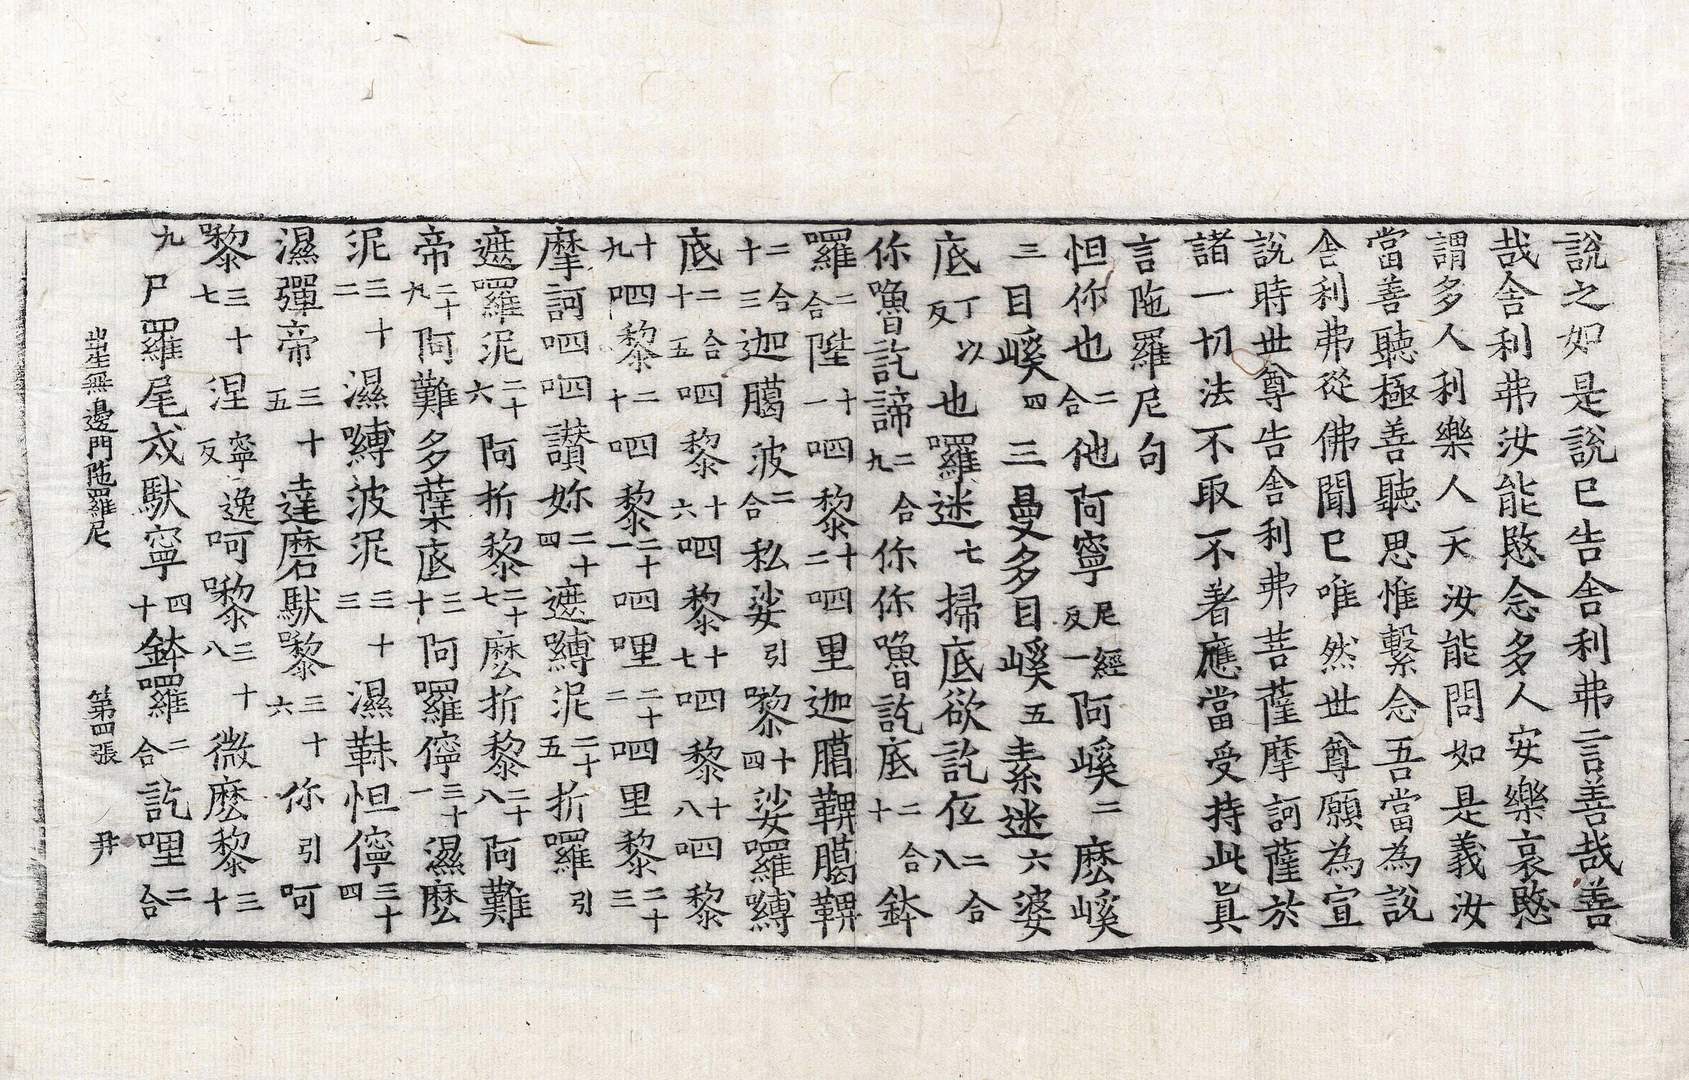 說之如是說已告舍利弗言善哉善
哉舍利弗汝能愍念多人安樂哀愍
謂多人利樂人天汝能問如是義汝
當善聽極善聽思惟繫念吾當為說
舍利弗從佛聞已唯然世尊願為宣
說時世尊告舍利弗菩薩摩訶薩於
諸一切法不取不著應當受持此真
言陁羅尼句
怛你也二合他阿寧尼經反一阿㗨二麼㗨
三目㗨四三曼多目㗨五素迷六婆
底丁以反也囉迷七掃底欲訖𠆙二合八
你嚕訖諦二合九你你嚕訖底二合十鉢
囉二合陛十一呬黎十二呬里迦臈鞞臈鞞
二合十三迦臈波二合私娑引黎十四娑囉嚩
底二合十五呬黎十六呬黎十七呬黎十八呬黎
十九呬黎二十呬黎二十一呬哩二十二呬里黎二十三
摩訶呬呬讃妳二十四遮嚩泥二十五折囉引
遮囉泥二十六阿折黎二十七麼折黎二十八阿難
帝二十九阿難多蘖底三十阿囉儜三十一濕麼
泥三十二濕嚩波泥三十三濕靺怛儜三十四
濕彈帝三十五達磨馱黎三十六你引呵
黎三十七涅寧逸反呵黎三十八微麽黎三十
九尸羅尾戍馱寧四十鉢囉二合訖哩二合
出生無邊門陁羅尼 第四張 尹